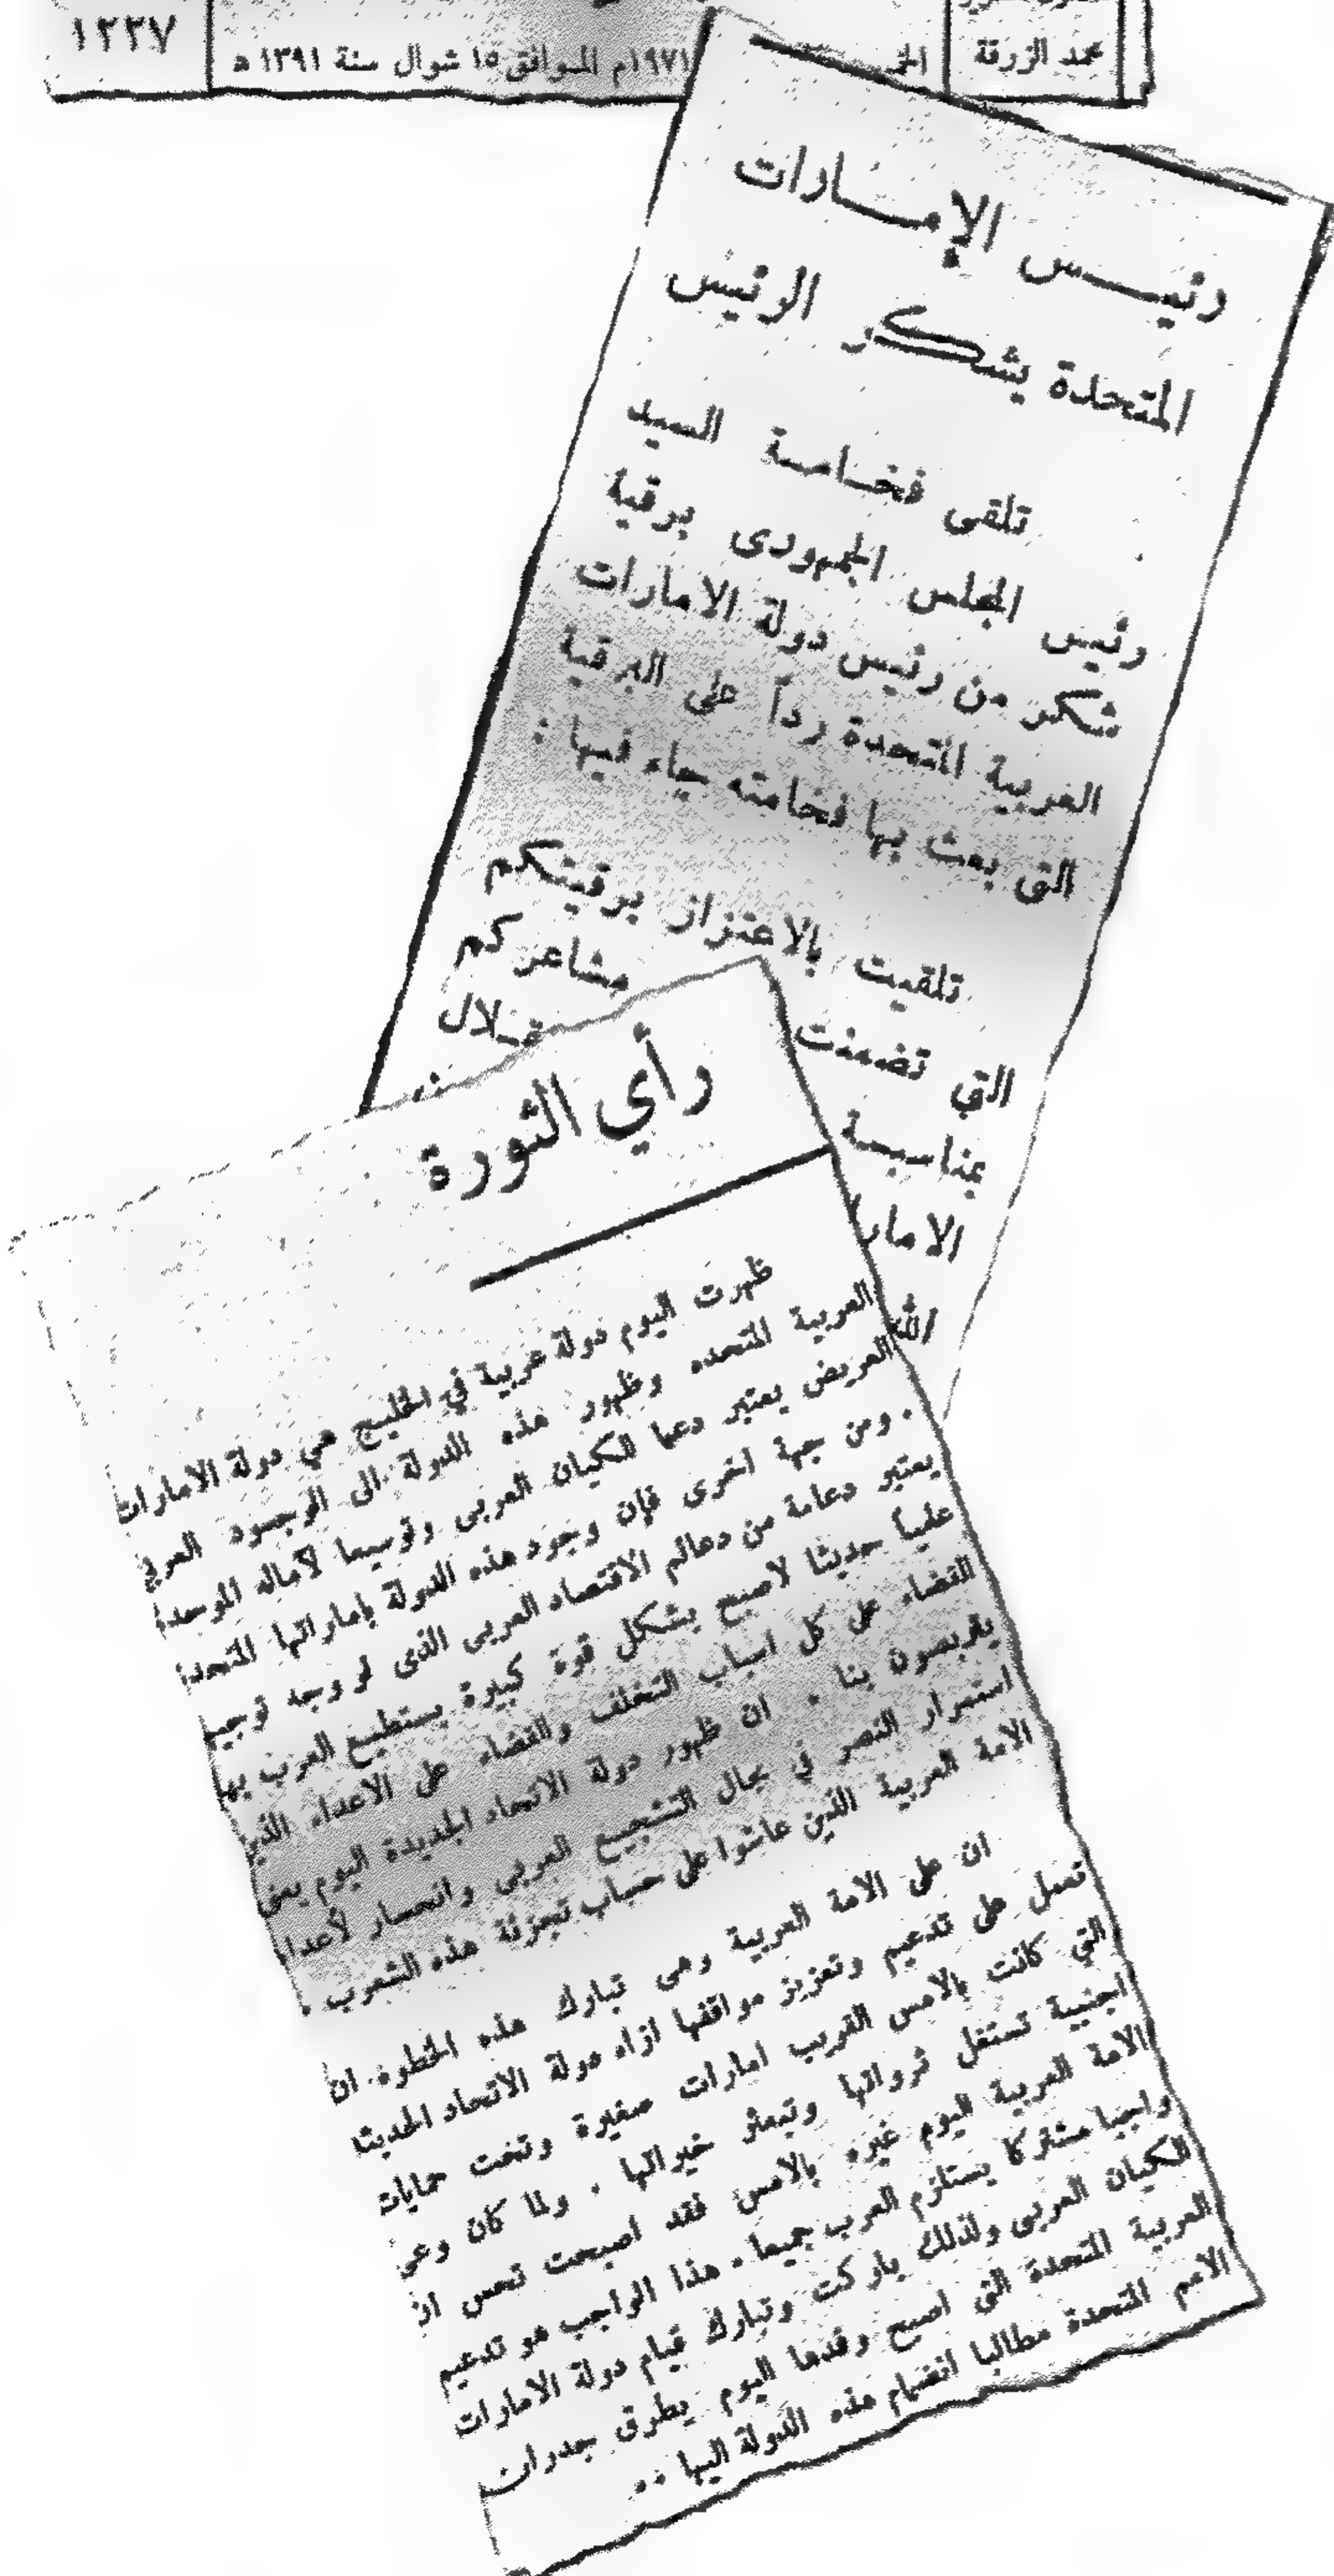 محمد الزرقة
١٩٧١م الموافق ١٥ شوال سنة ١٣٩١ هـ
١٢٢٧
رئيس الإمارات
المتحدة يشكر الرئيس
تلقى فخامة السيد
رئيس المجلس الجمهورى برقية
شكر من رئيس دولة الامارات
العربية المتحدة رداً على البرقية
التى بعث بها فخامته جاء فيها :
تلقيت بالاعتزاز برقيتكم
التي تضمنت مشاعركم
بمناسبة
الامار
الله
رأي الثورة
ظهرت اليوم دولة عربية في الخليج هي دولة الامارات
العربية المتحده وظهور هذه الدولة الى الوجود العربي
العريض يعتبر دعما للكيان العربى وتوسيعا لآماله الموحدة
. ومن جهة اخرى فإن وجود هذه الدولة بإماراتها المتحدة
يعتبر دعامة من دعائم الاقتصاد العربى الذى لو وجه توجيه
علمياً حديثا لاصبح يشكل قوة كبيرة يستطيع العرب بها
القضاء على كل اسباب التخلف والقضاء على الاعداء الذين
يتربصون بنا . ان ظهور دولة الاتحاد الجديدة اليوم يعنى
استمرار النصر في مجال التشجيع العربى وانحسار لأعداء
الامة العربية الذين عاشوا على حساب تجزئة هذه الشعوب .
ان على الامة العربية وهى تبارك هذه الخطوه ان
تعمل على تدعيم وتعزيز مواقفها ازاء دولة الاتحاد الحديثا
التي كانت بالامس القريب امارات صغيرة وتحت حمايات
اجنبية تستغل ثرواتها وتبعثر خيراتها . ولما كان وعي
الامة العربية اليوم غيره بالامس فقد اصبحت تحس ان
واجبا مشتركا يستلزم العرب جميعا . هذا الواجب هو تدعيم
الكيان العربى ولذلك باركت وتبارك قيام دولة الامارات
العربية المتحدة التى اصبح وفدها اليوم يطرق جدران
الامم المتحدة مطالبا انضمام هذه الدولة اليها ..